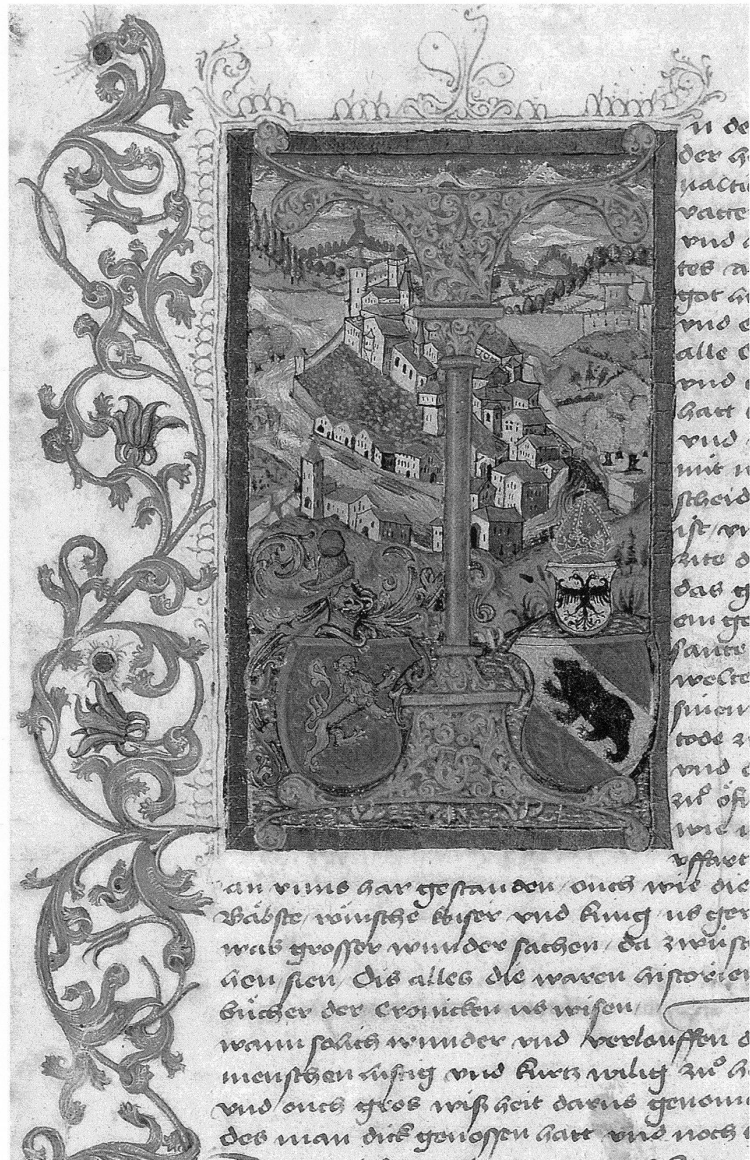 n de
der h
valti
vatte
vnd
tes a
got h
vnd e
alle
vnd
hatt
vnd
mit
scheid
ist / vn
zite d
das g
ein ge
sante
welte
sinen
tode z
vnd e
zuͦ off
wie
vffart
an vnns har gestanden / ouch wie die
Baͤbste / roͤmsche keiser vnd kuͤng us ger
was grosser wunder sachen / da zwuͤsc
hen sien / Dis alles die waren historien
buͤcher der Cronicken us wisen /
wann soͤlich wunder vnd verlouffen
menschen lustig vnd kurtz wilig zuͦ h
vnd ouch gros wisheit darus genom
des man dick genossen hatt vnd noch